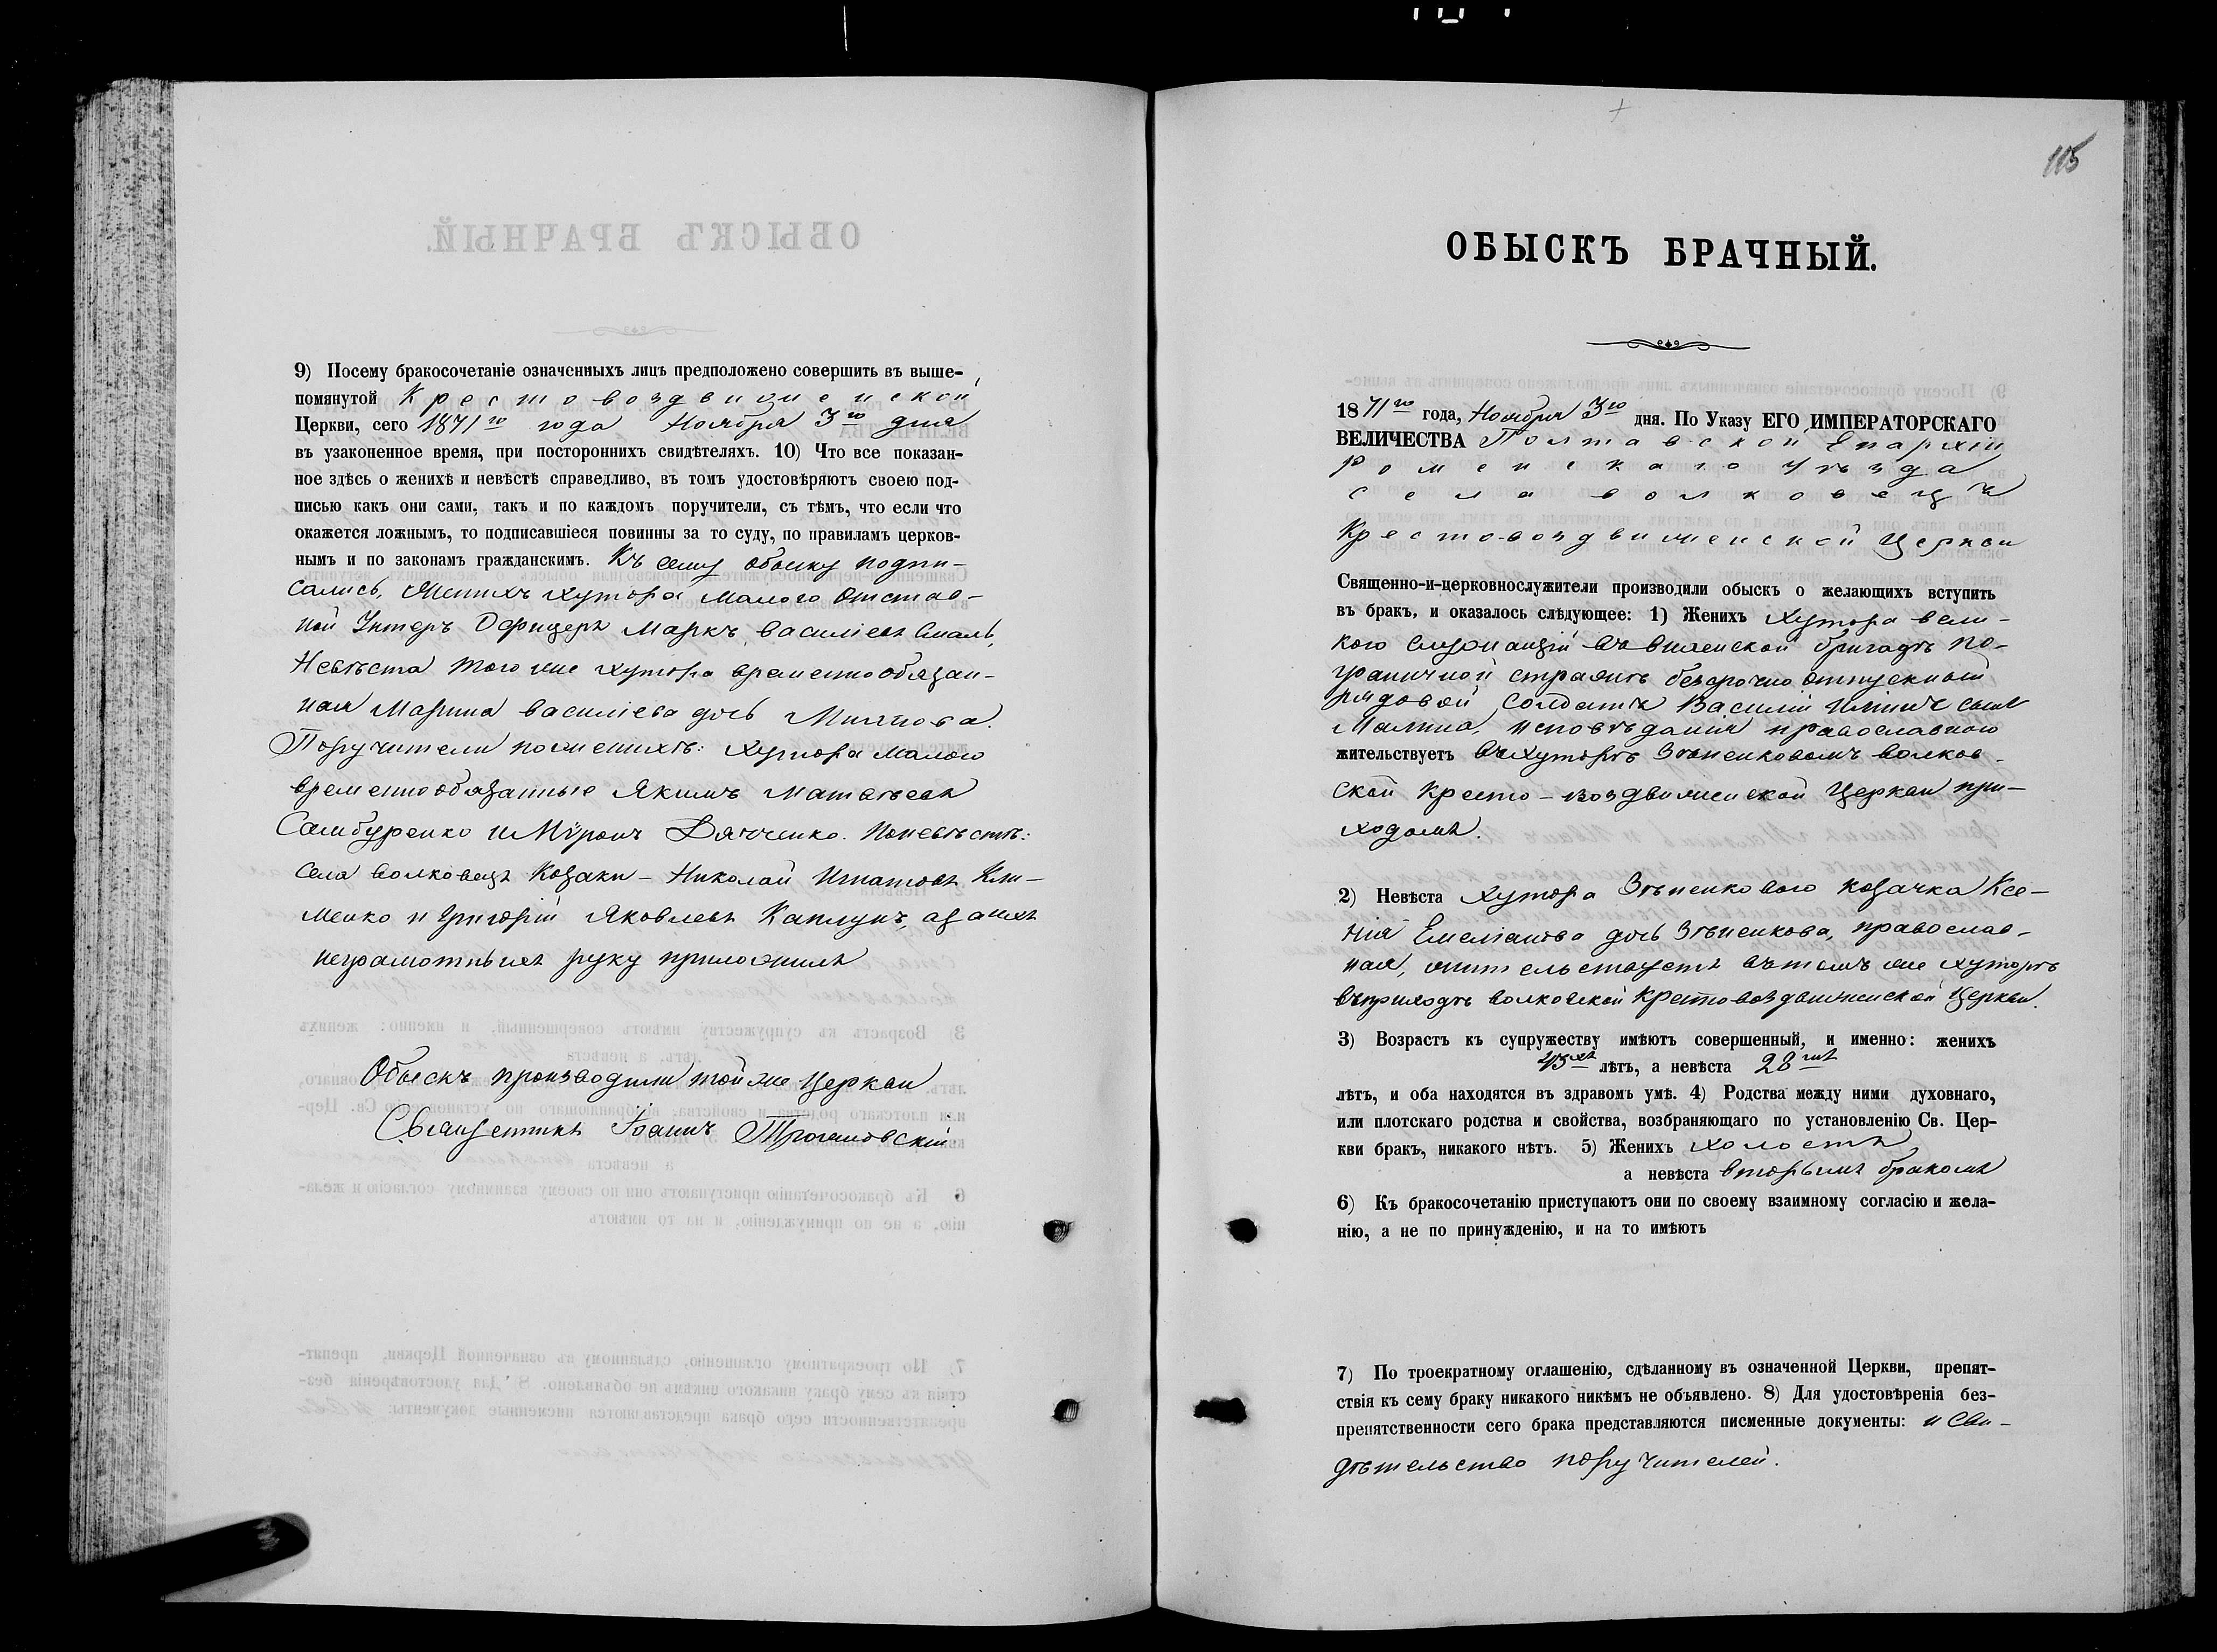 9) Посему бракосочетаніе означенныхъ лицъ предположено совершить въ выше-
помянутой Крестовоздвиженской
Церкви, сего 1871го года Ноября 3го дня
въ узаконенное время, при постороннихъ свидѣтеляхъ. 10) Что все показан-
ное здѣсь о женихѣ и невѣстѣ справедливо, въ томъ удостовѣряютъ своею под-
писью какъ они сами, такъ и по каждомъ поручители, съ тѣмъ, что если что
окажется ложнымъ, то подписавшіеся повинны за то суду, по правиламъ церков-
нымъ и по законамъ гражданскимъ. Къ сему обыску подпи-
сались, Женихъ хутора Малого отстав-
ной Унтеръ Офицеръ Маркъ Василіевъ
Невѣста того же хутора временнообязан-
ная Марина Василіева дочь
Поручители по женихѣ: хутора Малого
временнообязанные Якимъ Матвѣевъ
Самбуренко и Мѵронъ Дяченко. По невѣстѣ:
села Волковецъ Козаки – Николай Игнатовъ Кли-
менко и Григорій Яковлевъ Каплунъ, а за нихъ
неграмотныхъ руку приложилъ
Обыскъ производили той же Церкви
Священникъ Іоаннъ
115
ОБЫСКЪ БРАЧНЫЙ.
1871го года, Ноября 3го дня. По Указу ЕГО ИМПЕРАТОРСКАГО
ВЕЛИЧЕСТВА Полтавской Епархіи
Роменскаго уѣзда
села Волковецъ
Крестовоздвиженской Церкви
Священно-и-церковнослужители производили обыскъ о желающихъ вступить
въ бракъ, и оказалось слѣдующее: 1) Женихъ Хутора Вели-
кого служащій въ бригадѣ по-
граничной стражи безсрочно отпускной
рядовой солдатъ Василій Ильинъ сынъ
Малина, исповѣданія православного
жительствуетъ въ хуторѣ Зѣненковомъ Волков-
ской Кресто-воздвиженской Церкви при-
ходомъ.
2) Невѣста хутора Зѣненкового козачка Ксе-
нія Емеліанова дочь Зѣненкова, православ-
ная, жительствуетъ въ томъ же хуторѣ
въ приходѣ Волковской Крестовоздвиженской Церкви.
3) Возрастъ къ супружеству имѣютъ совершенный, и именно: женихъ
лѣтъ, а невѣста 28
лѣтъ, и оба находятся въ здравомъ умѣ. 4) Родства между ними духовнаго,
или плотскаго родства и свойства, возбраняющаго по установленію Св. Цер-
кви бракъ, никакого нѣтъ. 5) Женихъ холостъ
а невѣста вторымъ бракомъ
6) Къ бракосочетанію приступаютъ они по своему взаимному согласію и жела-
нію, а не по принужденію, и на то имѣютъ
7) По троекратному оглашенію, сдѣланному въ означенной Церкви, препят-
ствія къ сему браку никакого никѣмъ не объявлено. 8) Для удостовѣренія без-
препятственности сего брака представляются писменные документы: и сви-
дѣтельство поручителей.